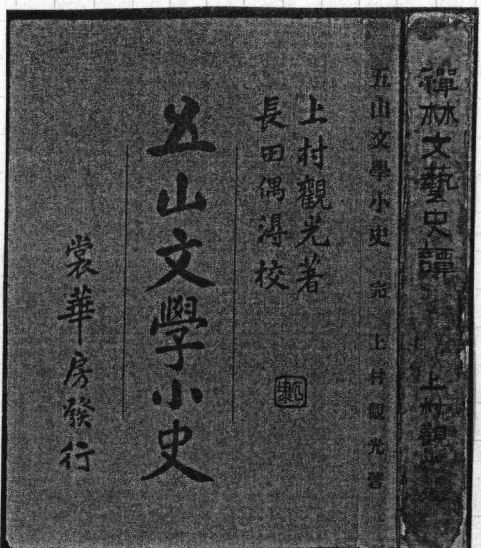 禪林文藝史譚 上村觀光
五山文學小史 完 上村觀光著
上村觀光著
長田偶得校
五山文學小史
裳華房發行